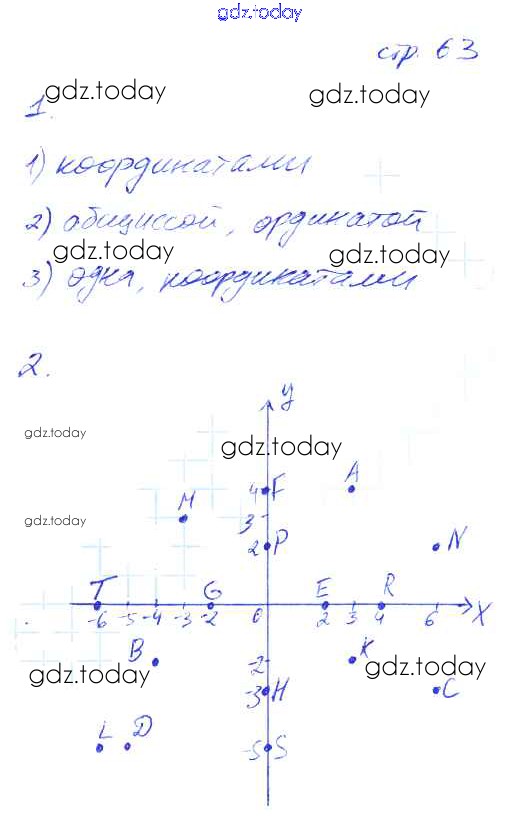 gdz.today
стр. 63
gdz.today
gdz.today
1.
1) координатами
2) абсциссой, ординатой
gdz.today
gdz.today
3) одна, координатами
2.
y
gdz.today
gdz.today
4 F A
M
gdz.today
3
2 P N
T G E R
-6 -5 -4 -3 -2 0 2 3 4 6 X
B -2 K
gdz.today
gdz.today
-3 H C
L D
-5 S
gdz.today
gdz.today